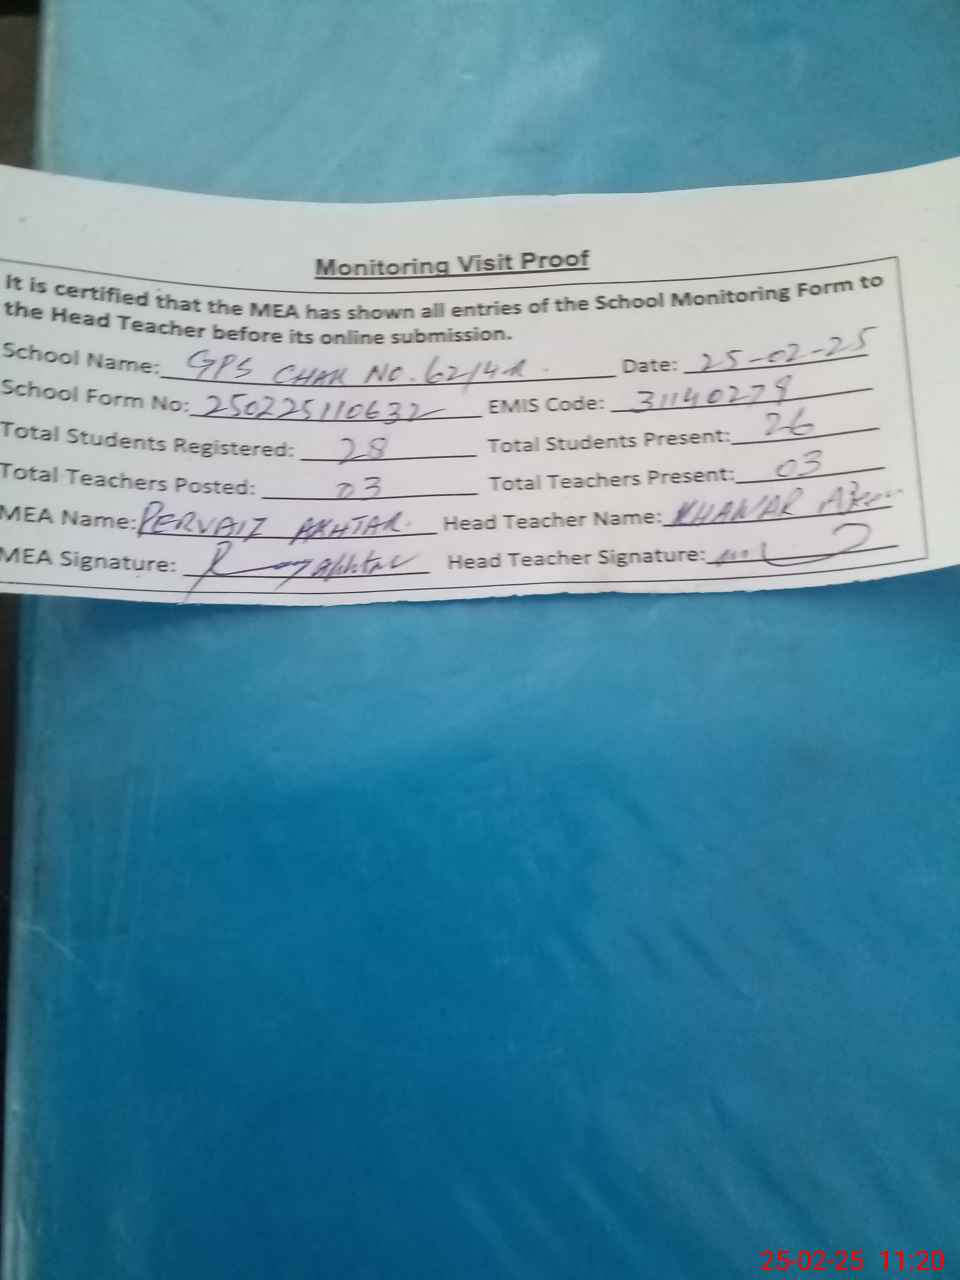 Monitoring Visit Proof
It is certified that the MEA has shown all entries of the School Monitoring Form to
the Head Teacher before its online submission.
School Name: GPS CHAK NO. 62/4-R. Date: 25-02-25
School Form No: 250225110632 EMIS Code: 31140278
Total Students Registered: 28 Total Students Present: 26
Total Teachers Posted: 03 Total Teachers Present: 03
MEA Name: PERVAIZ AKHTAR. Head Teacher Name: KHAWAR
MEA Signature: Akhtar Head Teacher Signature:
25-02-25 11:20